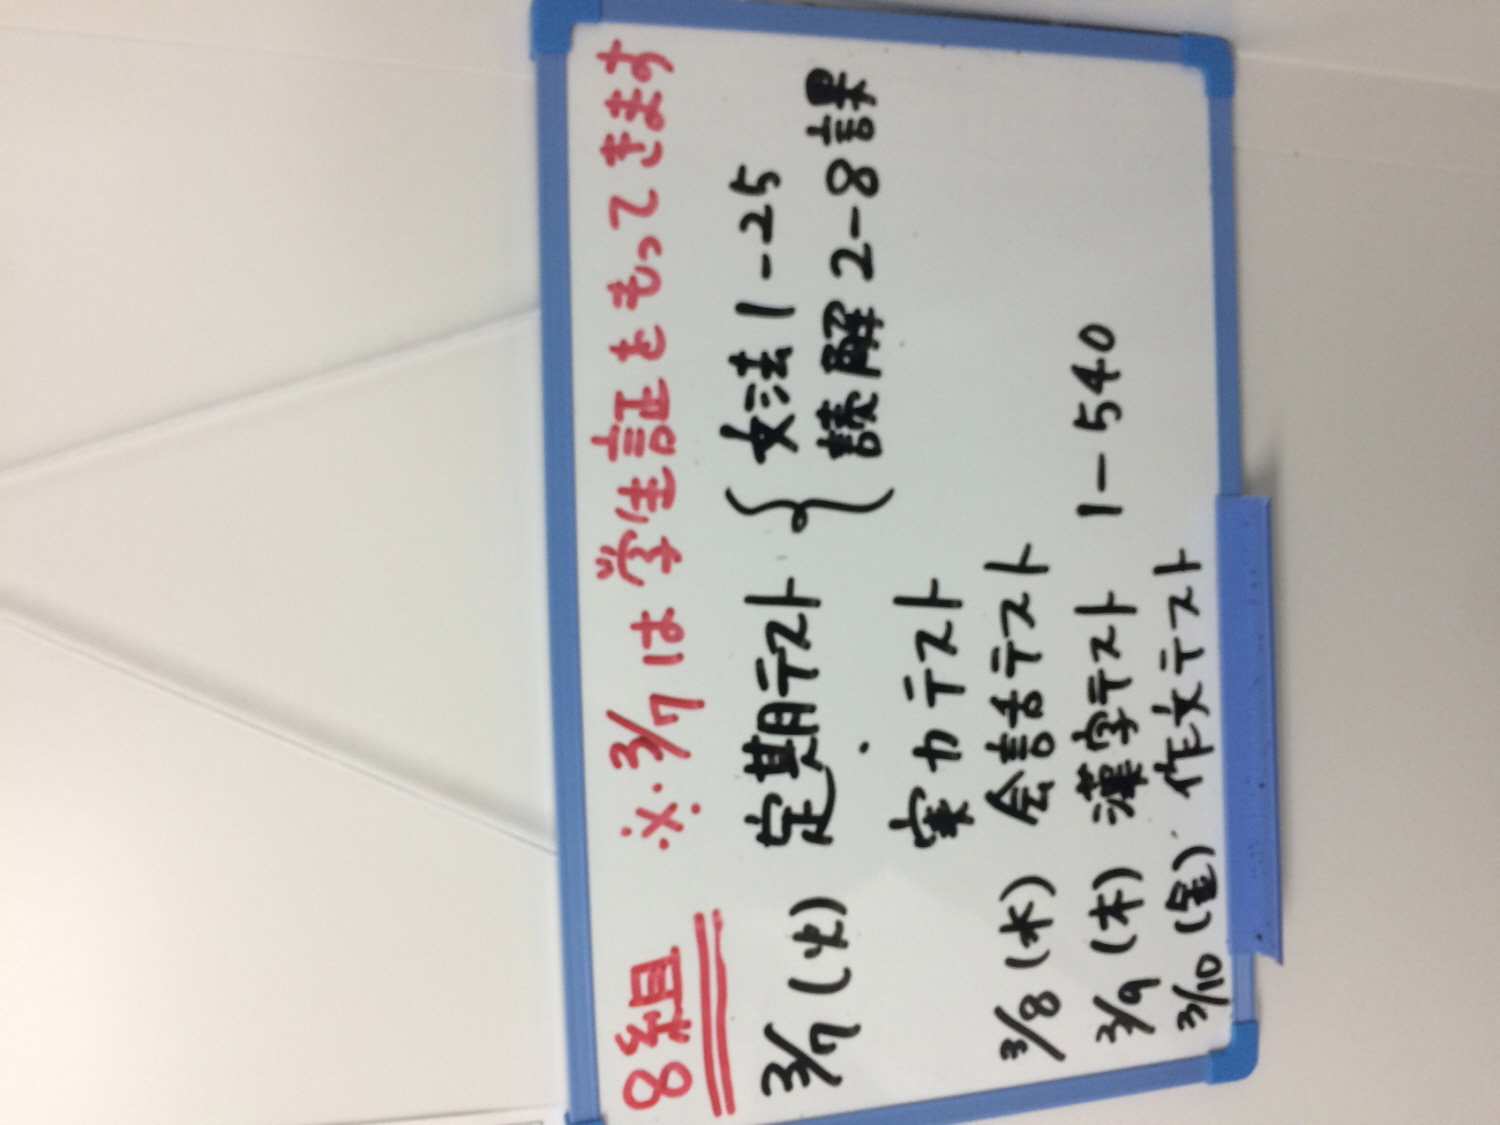 8組 ※3/7は学生証をもってきます
3/7(火) 定期テスト { 文法1-25
読解2-8課
実力テスト
3/8(水) 会話テスト
3/9(木) 漢字テスト 1-540
3/10(金) 作文テスト